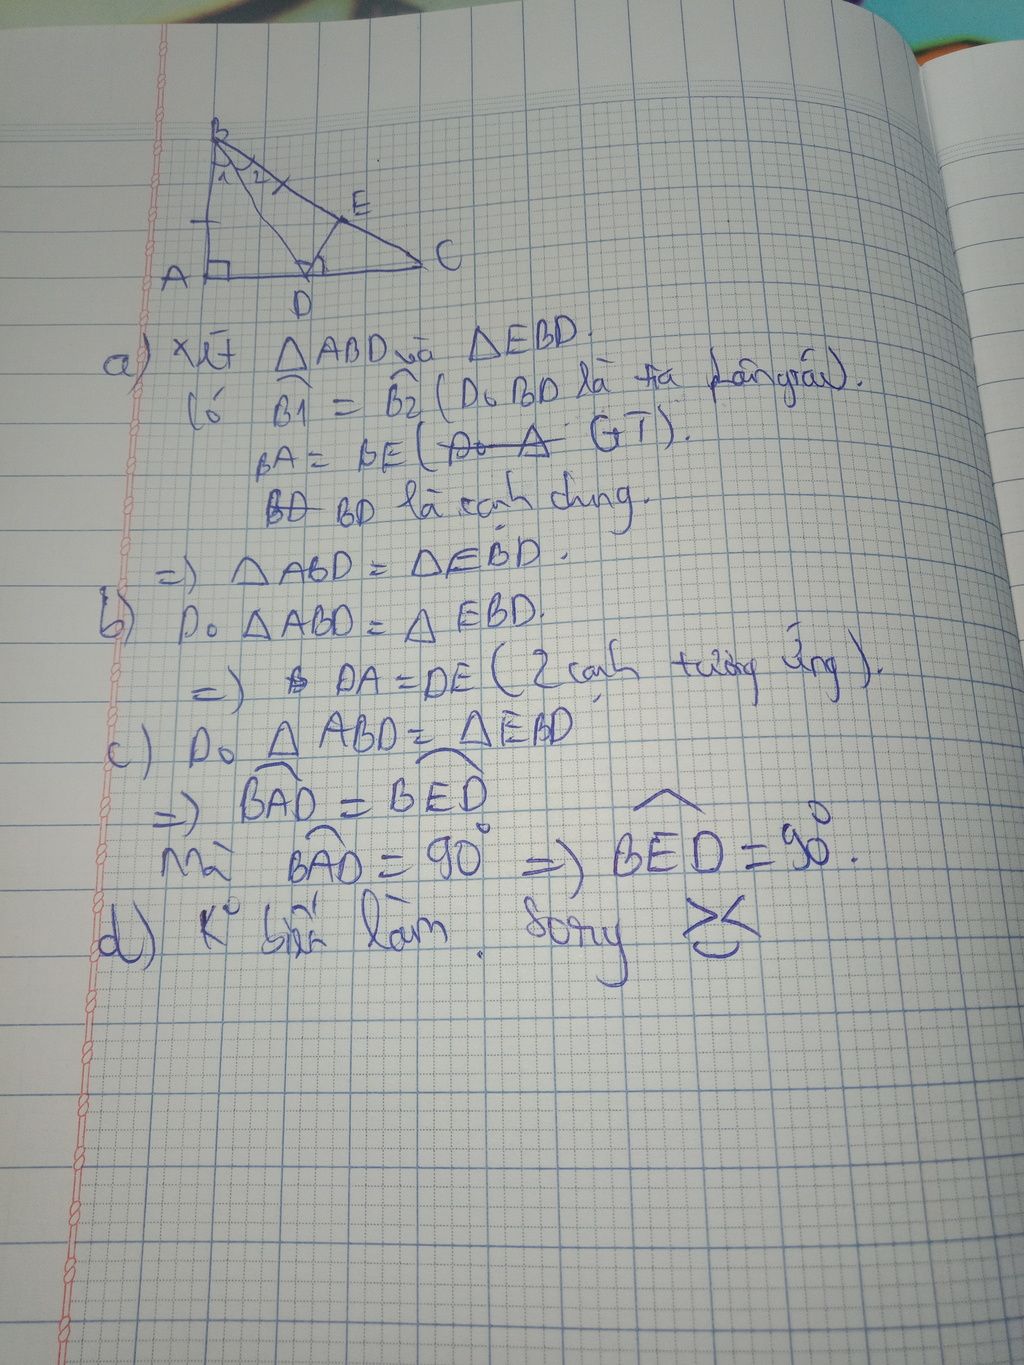 B
1 2
E
A
C
D
a) Xét ΔABD và ΔEBD.
Có B1 = B2 (Do BD là tia phân giác).
BA = BE (Do A GT).
BD BD là cạnh chung.
=) ΔABD = ΔEBD.
b) Do ΔABD = ΔEBD.
=) DA = DE (2 cạnh tương ứng).
c) Do ΔABD = ΔEBD
=) BAD = BED
Mà BAD = 90° =) BED = 90°.
d) K° biết làm. Sorry ><